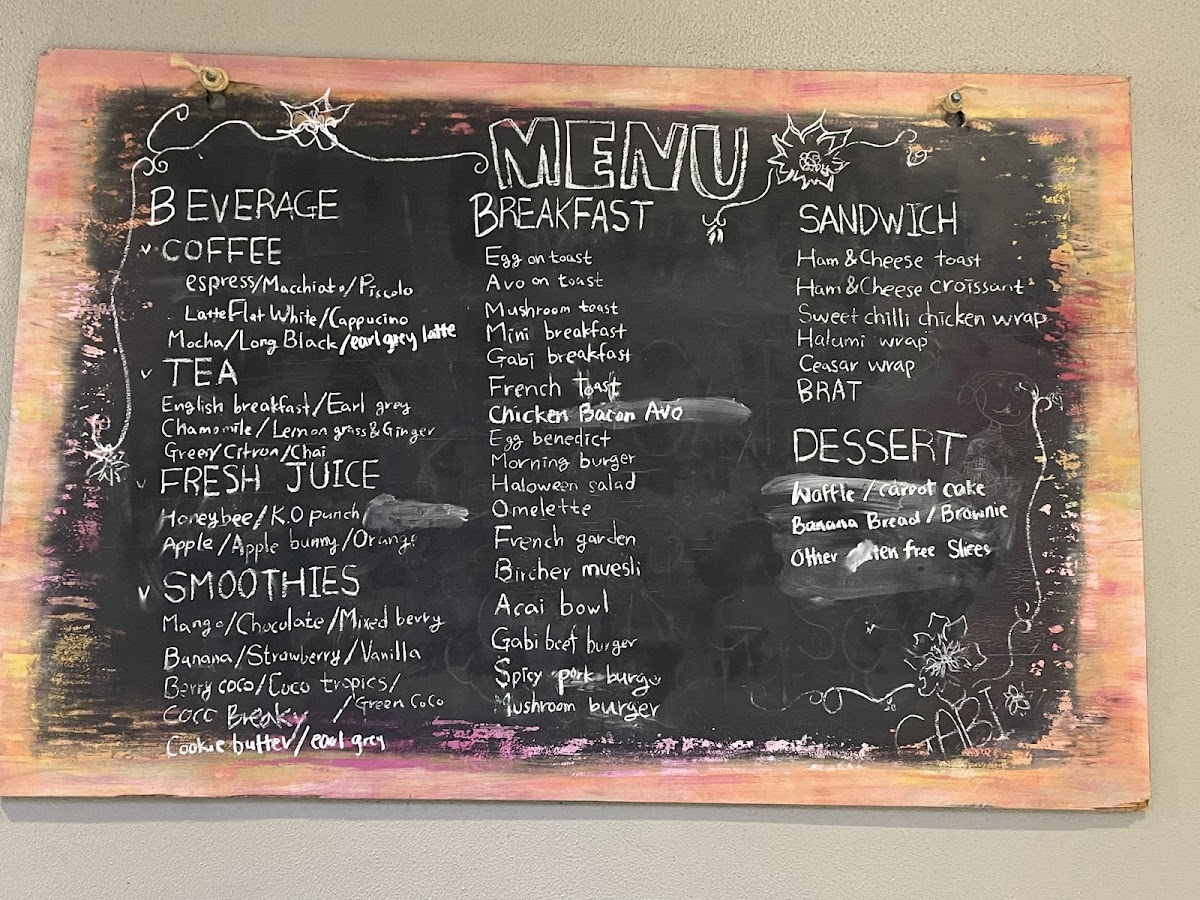 MENU
BEVERAGE
COFFEE
espress/Macchiato/Piccolo
Latte Flat White/Cappucino
Mocha/Long Black/earl grey latte
TEA
English breakfast/Earl grey
Chamomile/Lemon grass & Ginger
Green/Citron/Chai
FRESH JUICE
Honeybee/K.O punch
Apple/Apple bunny/Orange
SMOOTHIES
Mango/Chocolate/Mixed berry
Banana/Strawberry/Vanilla
Berry coco/Coco tropics/
Coco Breaky /Green Coco
Cookie butter/earl grey
BREAKFAST
Egg on toast
Avo on toast
Mushroom toast
Mini breakfast
Gabi breakfast
French toast
Chicken Bacon Avo
Egg benedict
Morning burger
Haloween salad
Omelette
French garden
Bircher muesli
Acai bowl
Gabi beef burger
Spicy pork burge
Mushroom burger
SANDWICH
Ham & Cheese toast
Ham & Cheese croissant
Sweet chilli chicken wrap
Halumi wrap
Ceasar wrap
BRAT
DESSERT
Waffle/carrot cake
Banana Bread/Brownie
Other ten free Slices
GABI